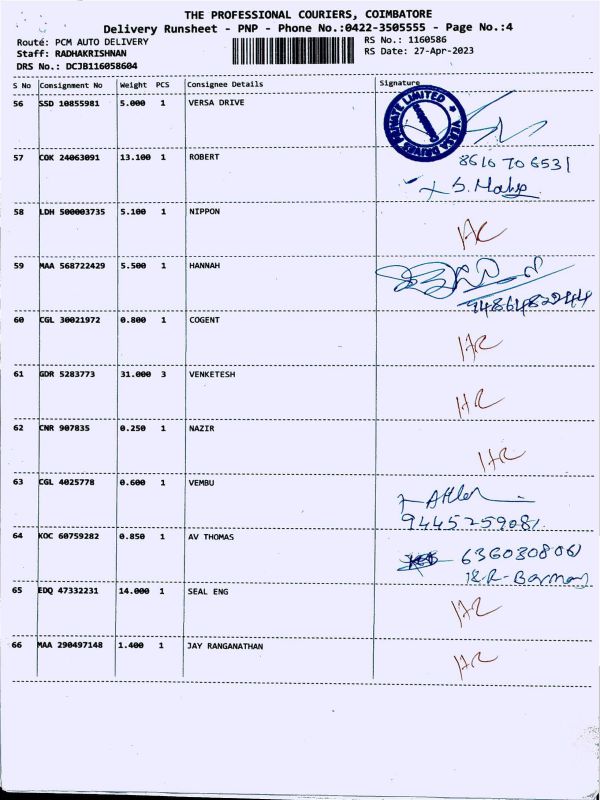 THE PROFESSIONAL COURIERS, COIMBATORE
Delivery Runsheet - PNP - Phone No.:0422-3505555 - Page No.:4
Route: PCM AUTO DELIVERY RS No.: 1160586
Staff: RADHAKRISHNAN RS Date: 27-Apr-2023
DRS No.: DCJB116058604
S No Consignment No Weight PCS Consignee Details Signature
56 SSD 10855981 5.000 1 VERSA DRIVE
VERSA DRIVES PRIVATE LIMITED
57 COK 24063091 13.100 1 ROBERT 8610706531
58 LDH 500003735 5.100 1 NIPPON
59 MAA 568722429 5.500 1 HANNAH
9486482944
60 CGL 30021972 0.800 1 COGENT
61 GDR 5283773 31.000 3 VENKETESH
62 CNR 907835 0.250 1 NAZIR
63 CGL 4025778 0.600 1 VEMBU
9445259081
64 KOC 60759282 0.850 1 AV THOMAS 6360308061
K.R-Barman
65 EDQ 47332231 14.000 1 SEAL ENG
66 MAA 290497148 1.400 1 JAY RANGANATHAN